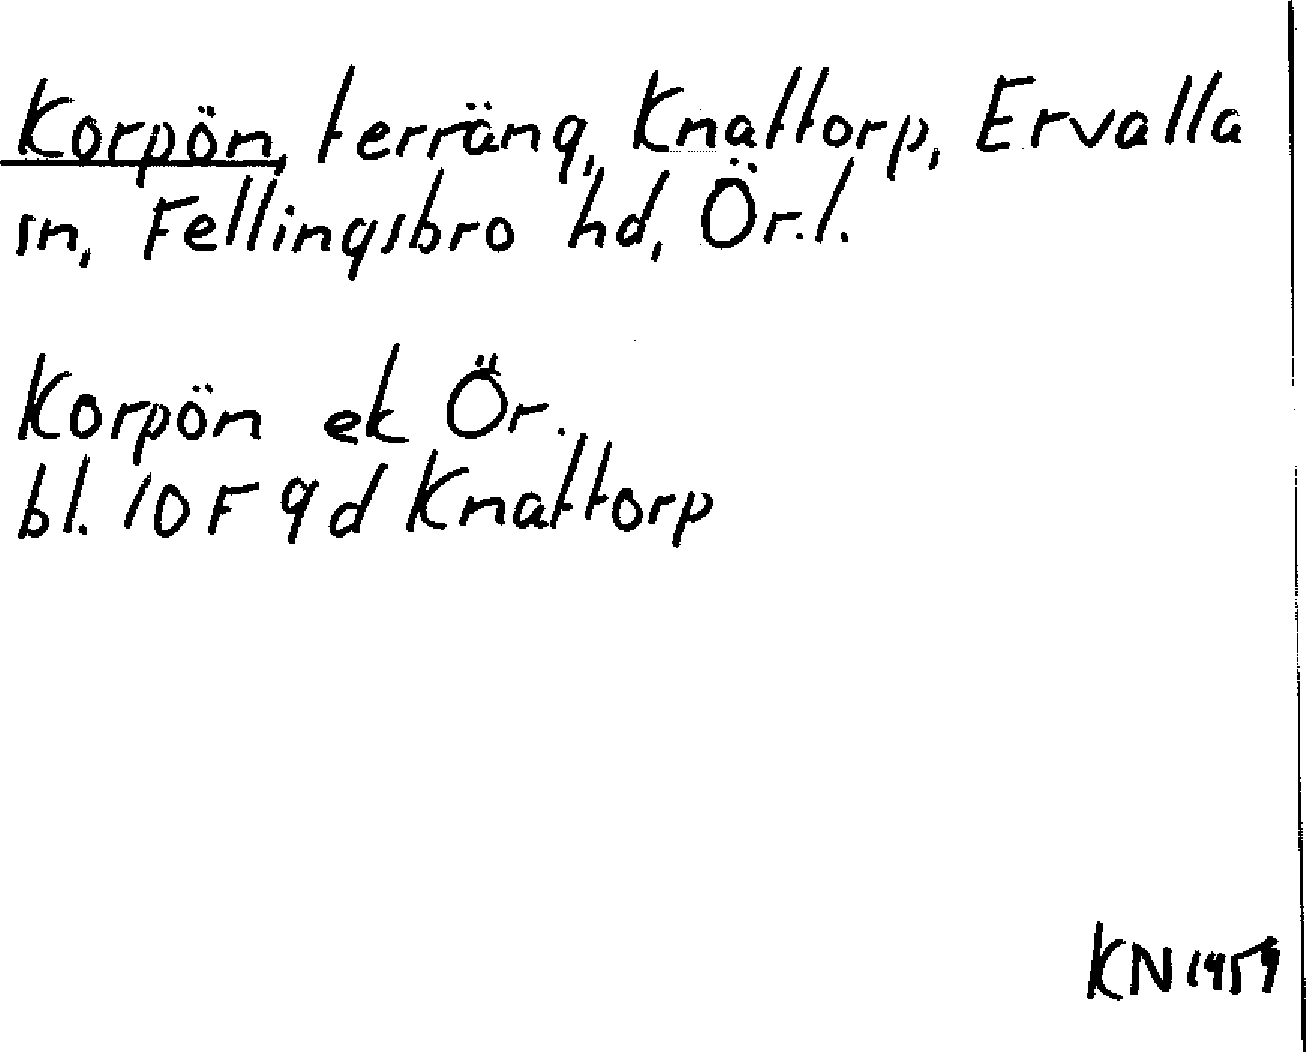 Korpön, terräng, Knattorp, Ervalla
sn, Fellingsbro hd, Ör.l.
Korpön ek Ör.
bl. 10F 9d Knattorp
KN 1959